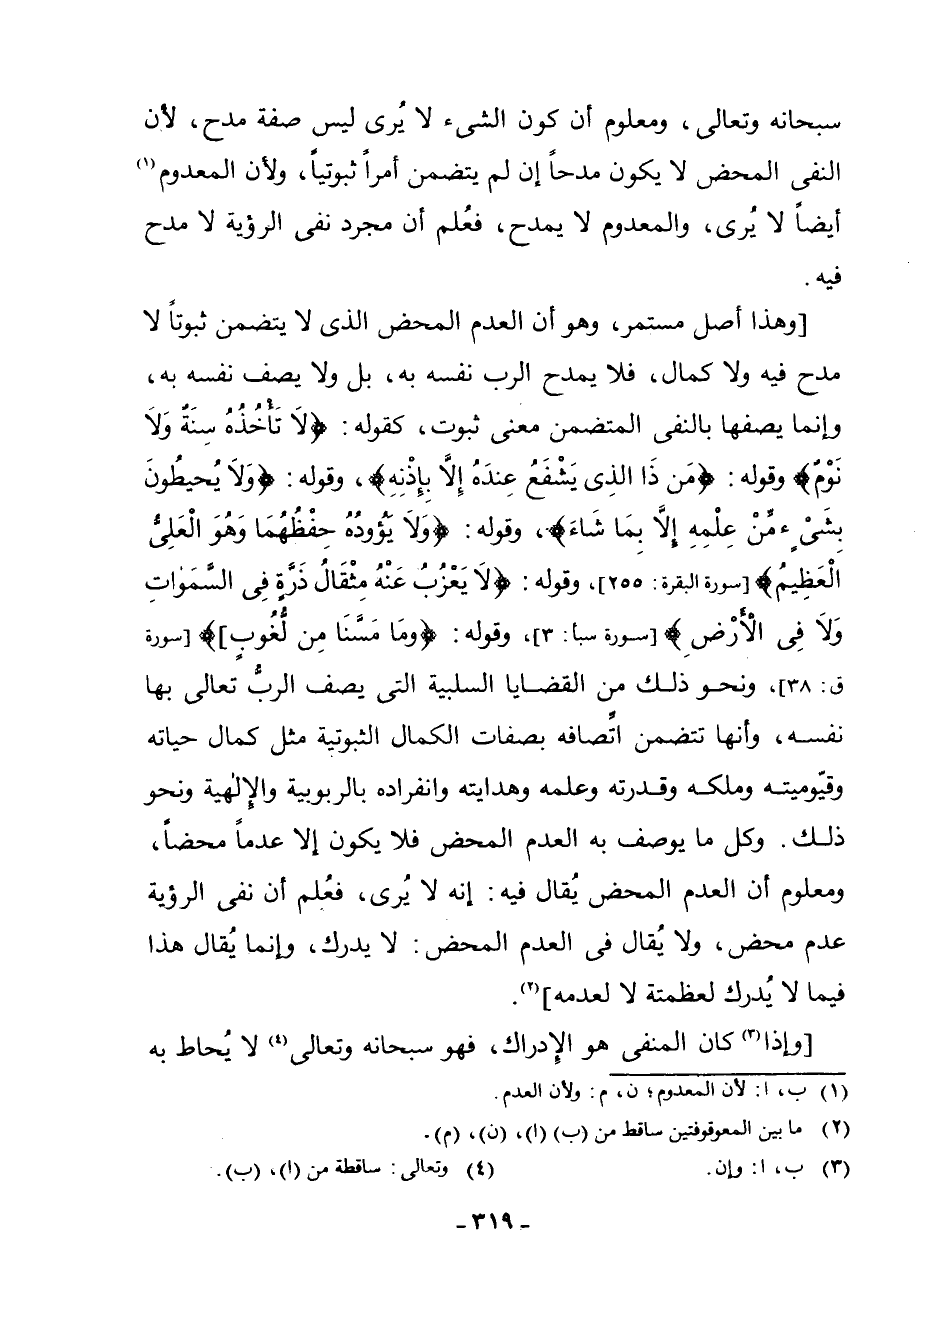 سبحانه وتعالى، ومعلوم أن كون الشىء لا يُرى ليس صفة مدح، لأن
النفى المحض لا يكون مدحاً إن لم يتضمن أمراً ثبوتياً، ولأن المعدوم(١)
أيضاً لا يُرى، والمعدوم لا يمدح، فعُلم أن مجرد نفى الرؤية لا مدح
فيه.
[وهذا أصل مستمر، وهو أن العدم المحض الذى لا يتضمن ثبوتاً لا
مدح فيه ولا كمال، فلا يمدح الرب نفسه به، بل ولا يصف نفسه به،
وإنما يصفها بالنفى المتضمن معنى ثبوت، كقوله: ﴿لَا تَأْخُذُهُ سِنَةٌ وَلَا
نَوْمٌ﴾ وقوله: ﴿مَن ذَا الذِى يَشْفَعُ عِندَهُ إِلَّا بِإِذْنِهِ﴾، وقوله: ﴿وَلَا يُحِيطُونَ
بِشَىْءٍ مِّنْ عِلْمِهِ إِلَّا بِمَا شَاءَ﴾، وقوله: ﴿وَلَا يَؤُودُهُ حِفْظُهُمَا وَهُوَ الْعَلِىُّ
الْعَظِيمُ﴾ [سورة البقرة: ٢٥٥]، وقوله: ﴿لَا يَعْزُبُ عَنْهُ مِثْقَالُ ذَرَّةٍ فِى السَّمَوَاتِ
وَلَا فِى الْأَرْضِ﴾ [سورة سبأ: ٣]، وقوله: ﴿وَمَا مَسَّنَا مِن لُّغُوبٍ]﴾ [سورة
ق: ٣٨]، ونحو ذلك من القضايا السلبية التى يصف الربُّ تعالى بها
نفسه، وأنها تتضمن اتِّصافه بصفات الكمال الثبوتية مثل كمال حياته
وقيّوميته وملكه وقدرته وعلمه وهدايته وانفراده بالربوبية والإلٰهية ونحو
ذلك. وكل ما يوصف به العدم المحض فلا يكون إلا عدماً محضاً،
ومعلوم أن العدم المحض يُقال فيه: إنه لا يُرى، فعُلم أن نفى الرؤية
عدم محض، ولا يُقال فى العدم المحض: لا يدرك، وإنما يُقال هذا
فيما لا يُدرك لعظمتة لا لعدمه](٢).
[وإذا(٣) كان المنفى هو الإدراك، فهو سبحانه وتعالى(٤) لا يُحاط به
(١) ب، ا: لأن المعدوم؛ ن، م: ولأن العدم.
(٢) ما بين المعوقوفتين ساقط من (ب) (ا)، (ن)، (م).
(٣) ب، ا: وإن. (٤) وتعالى: ساقطة من (ا)، (ب).
- ٣١٩ -